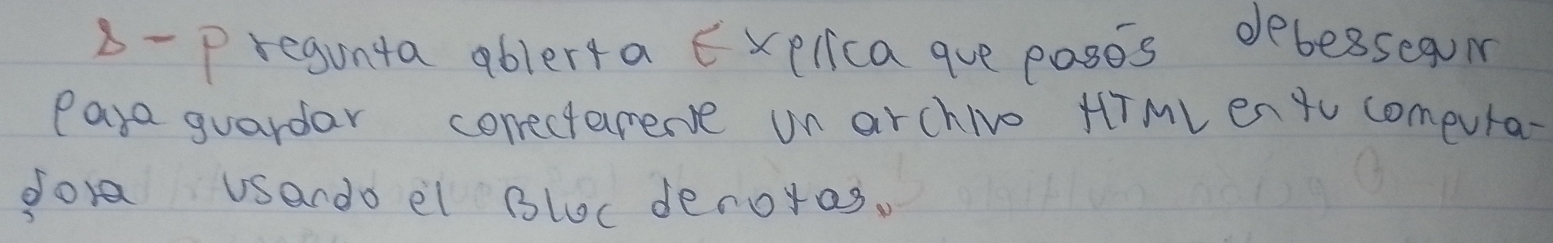 8-Pregunta abierta Explica que pasos debes seguir
para guardar correctamente un archivo HTML en tu computa-
dora usando el Bloc de notas.